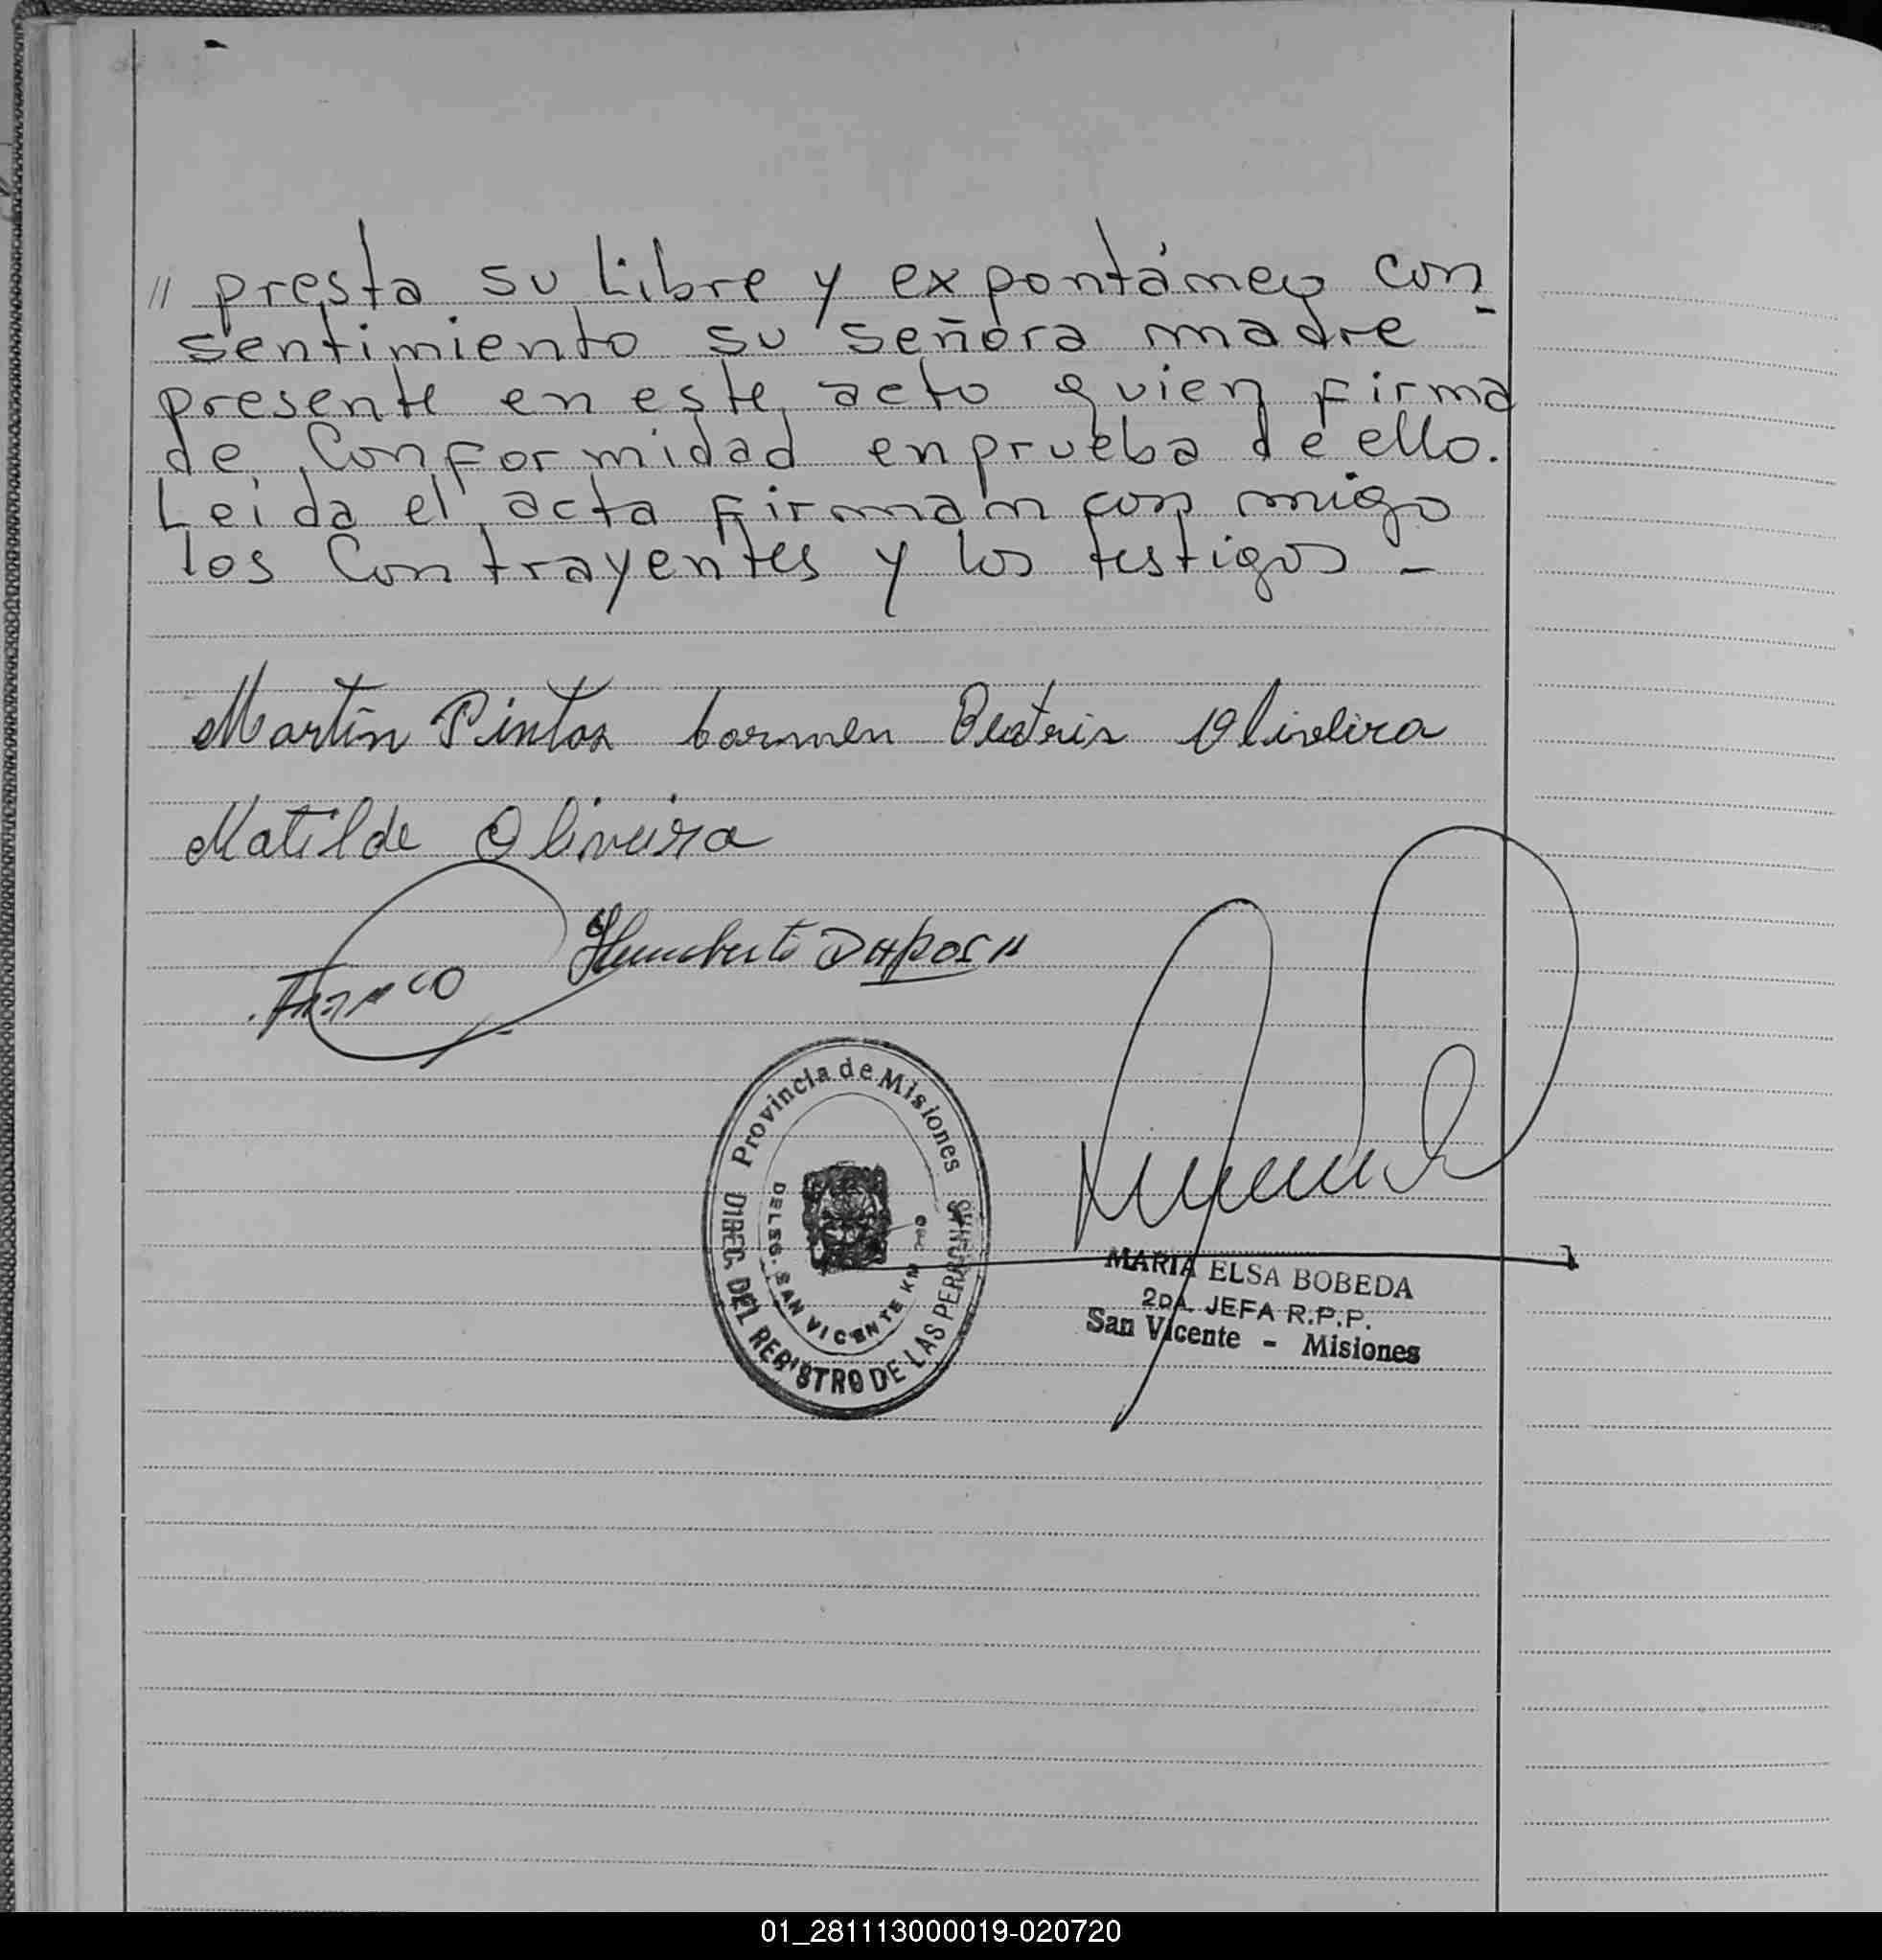 // presta su libre y expontáneo con
sentimiento su señora madre -
presente en este acto quien firma
de conformidad en prueba de ello.
Leida el acta firman con migo
los contrayentes y los testigos -
Martín Pintos Carmen Beatris Oliveira
Matilde Oliveira
Humberto
Provincia de Misiones
DIREC. DEL REGISTRO DE LAS PERSONAS
DELEG. SAN VICENTE KM
MARIA ELSA BOBEDA
2DA. JEFA R.P.P.
San Vicente - Misiones
01_281113000019-020720